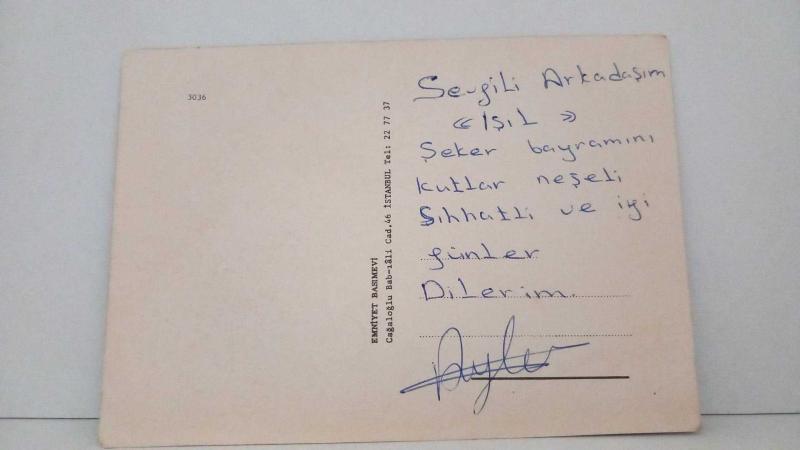 3036
EMNİYET BASIMEVİ
Cağaloğlu Bab-ıâli Cad.46 İSTANBUL Tel: 22 77 37
Sevgili Arkadaşım
« Işıl »
Şeker bayramını
kutlar neşeli
Sıhhatli ve iyi
günler
Dilerim.